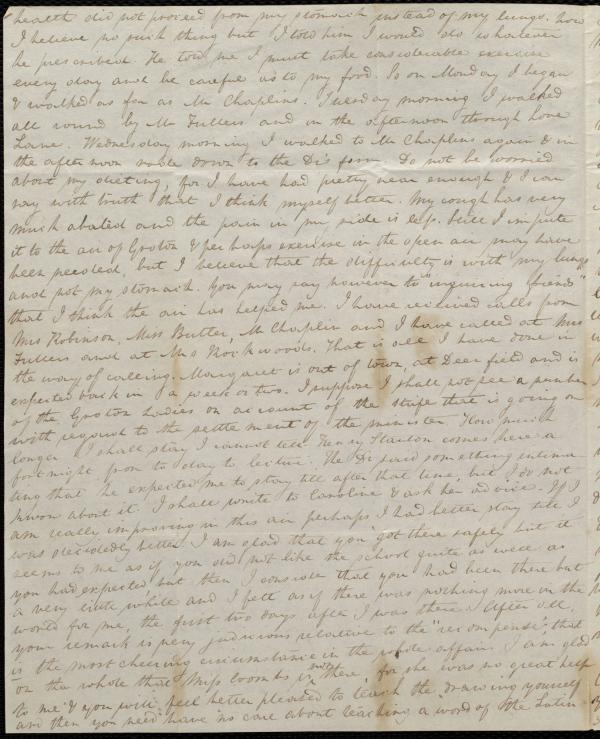 health did not proceed from my stomach instead of my lungs. Now
I believe no such thing but I told him I would do whatever
he prescribed. He told me I must take considerable exercise
every day and be careful as to my food. So on Monday I began
& walked as far as Mr Chaplins. Tuesday morning I walked
all round by Mr Fullers and in the afternoon through Love
Lane. Wednesday morning I walked to Mr Chaplins again & in
the afternoon rode down to the Dr's farm. Do not be worried
about my dieting, for I have had pretty near enough & I can
say with truth that I think myself better. My cough has very
much abated and the pain in my side is less. Still I impute
it to the air of Groton & perhaps exercise in the open air may have
been needed, but I believe that the difficulty is with my lungs
and not my stomach. You may say however to "inquiring friends"
that I think the air has helped me. I have received calls from
Mrs Robinson, Miss Butler, Mr Chaplin and I have called at Mrs
Fullers and at Mrs Rockwoods. That is all I have done in
the way of calling. Margaret is out of town, at Deerfield and is
expected back in a week or two. I suppose I shall not see a number
of the Groton Ladies on account of the strife there is going on
with regard to the settlement of the minister. How much
longer I shall stay I cannot tell. Henry Stanton comes here a
fortnight from to day to lecture. The Dr said something intima-
ting that he expected me to stay till after that time, but I do not
know about it. I shall write to Caroline & ask her advice. If I
am really improving in this air perhaps I had better stay till I
was decidedly better. I am glad that you got there safely but it
seems to me as if you did not like the school quite as well as
you had expected, but then I consider that you had been there but
a very little while and I felt as if there was nothing more in the
world for me, the first two days after I was there. After all,
your remark is very judicious relative to the "recompense", that
is the most cheering circumstance in the whole affair. I am glad
on the whole that Miss Coombs is not there, for she was no great help
to me & you will feel better pleased to teach the drawing yourself
and then you need have no care about teaching a word of the Latin